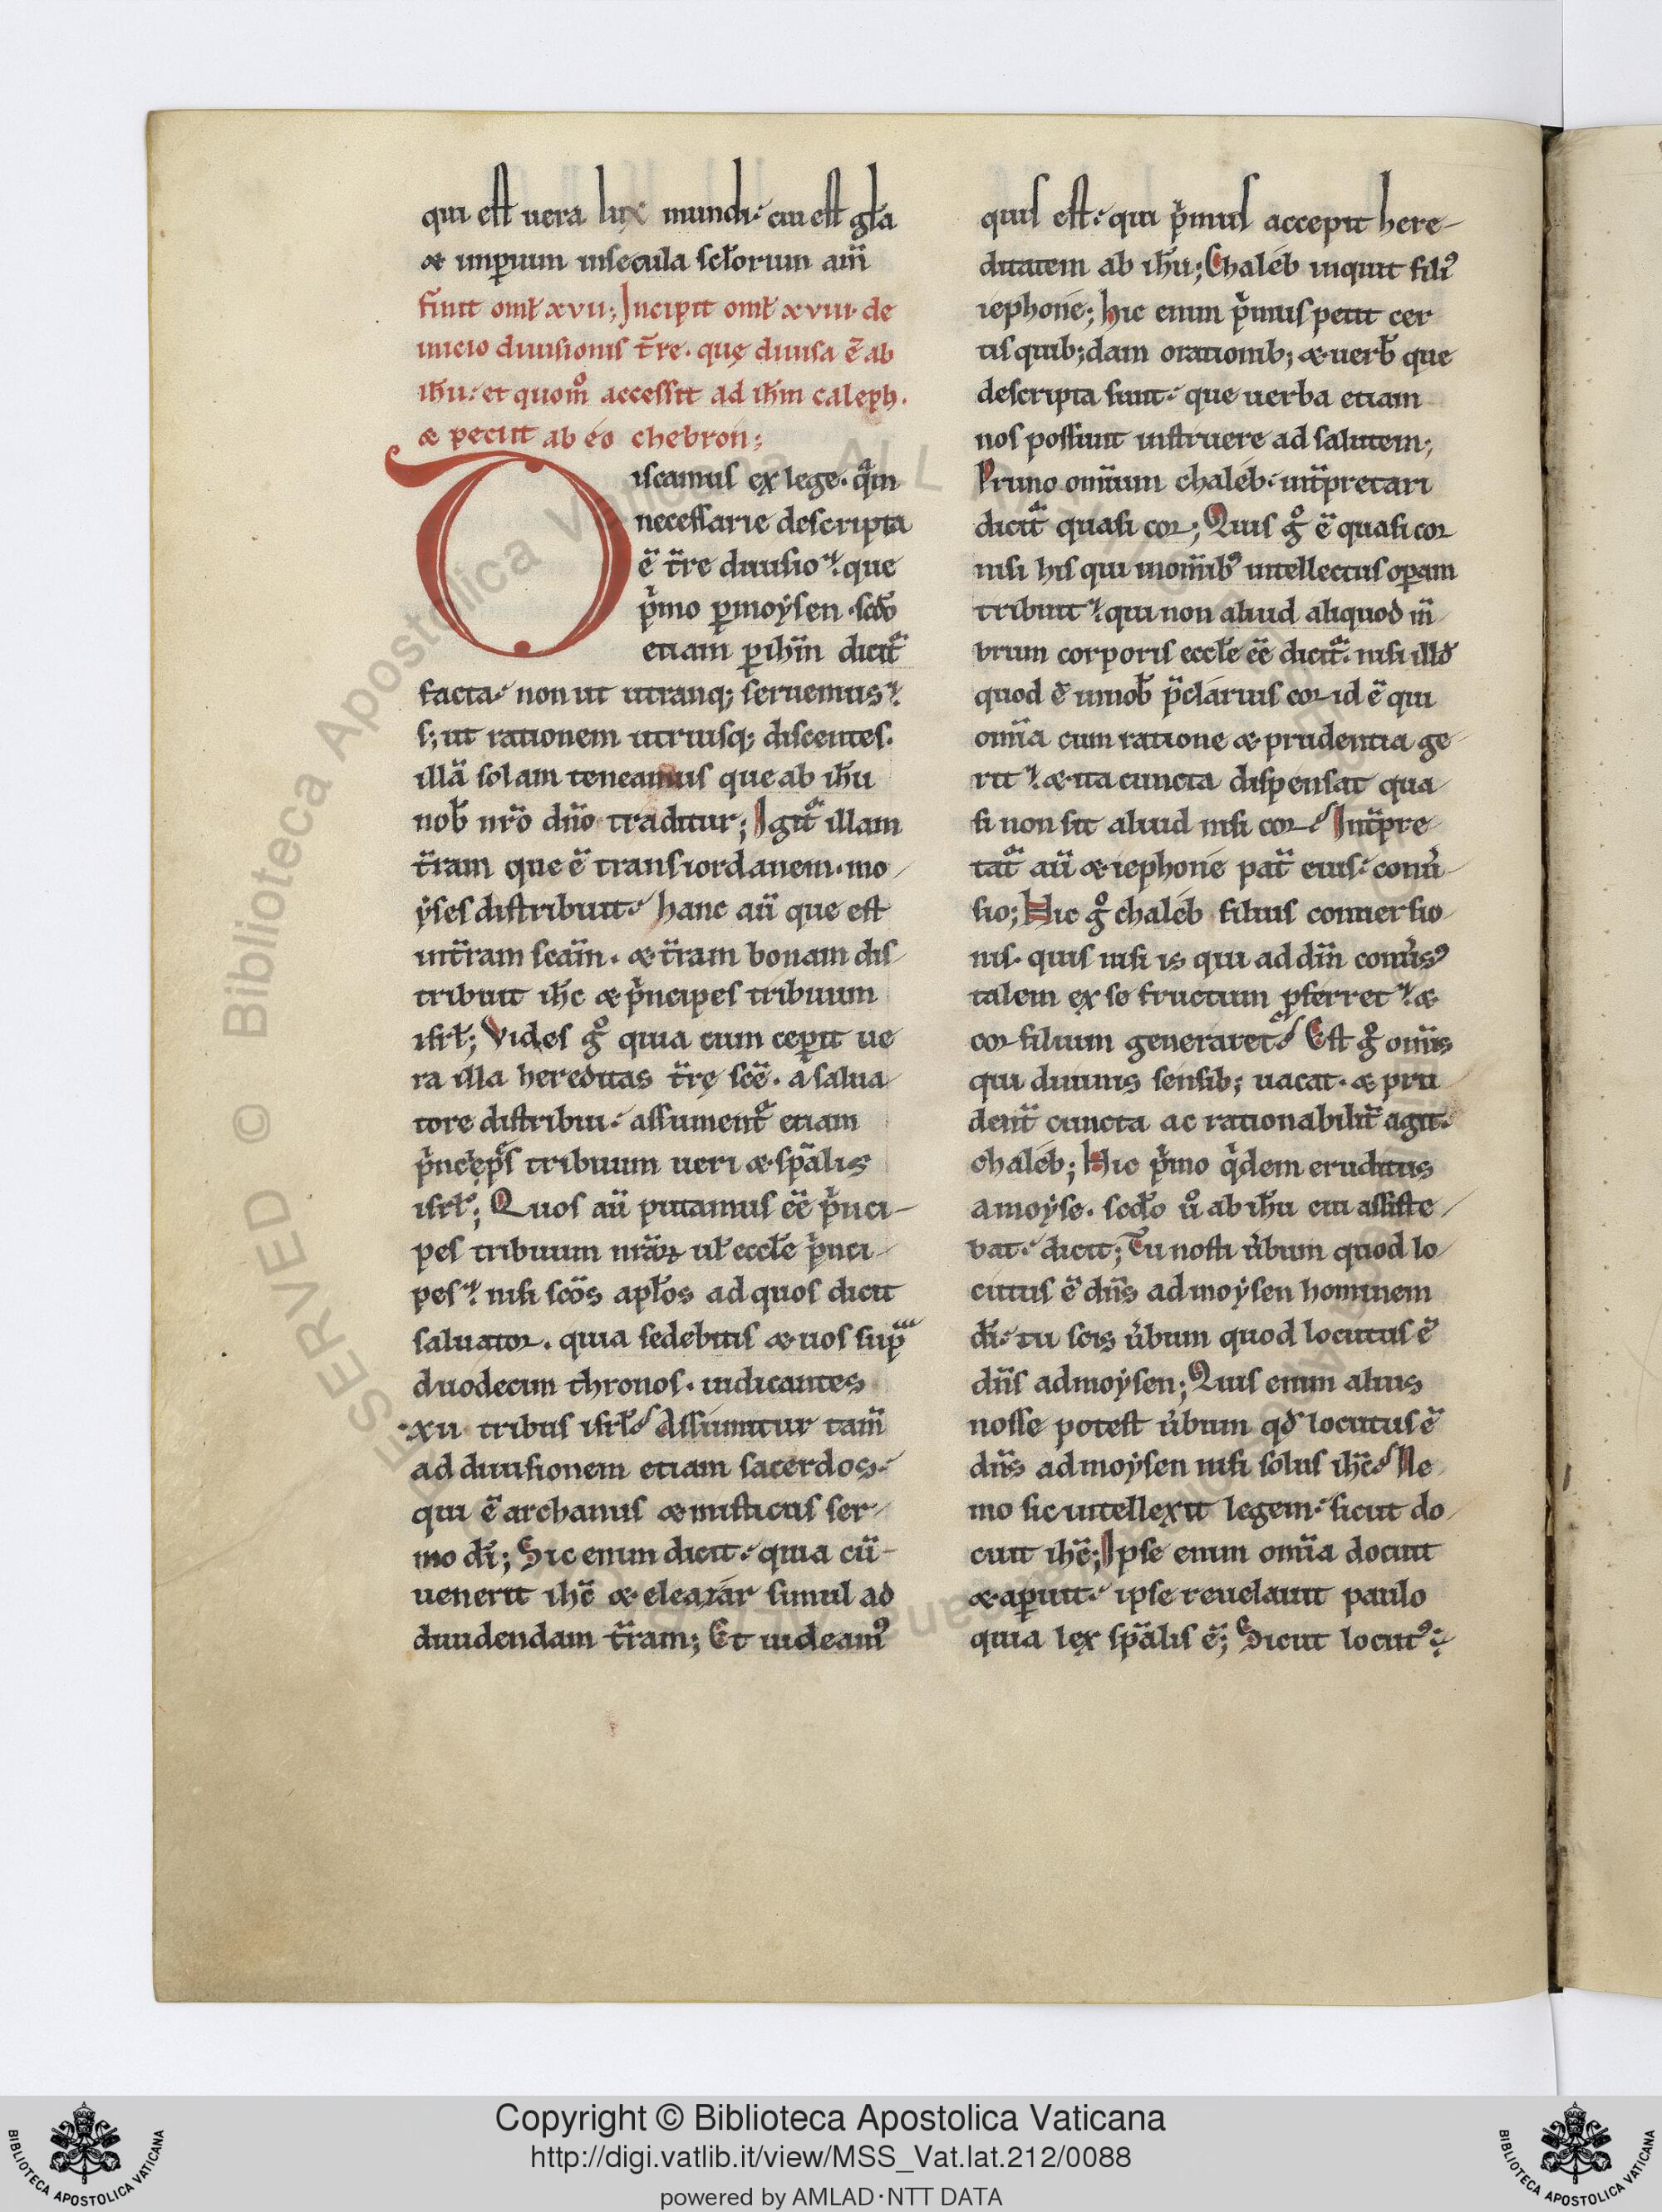 qui est uera lux mundi. cui est gl̄a
& imꝑium in secula sc̄lorum am̄
finit oml̄ xvii; Incipit oml̄ xviii. de
inicio diuisionis t̄re. quę diuisa ē ab
ih̄u. et quom̊ accessit ad ih̄m caleph.
& peciit ab eo chebron;
Discamus ex lege. qᷓm
necessarie descripta
ē t̄re diuisio. que
p̍mo ꝑ moẏsen. scd̄o
etiam ꝑ ih̄m dicit᷑
facta. non ut utranq; seruemus.
s; ut rationem utriusq; discentes.
illā solam teneamus que ab ih̄u
nob̄ nr̄o dn̄o traditur; Igit᷑ illam
t̄ram que ē trans iordanem. mo
ẏses distribuit. hanc aū que est
in t̄ram scām. & t̄ram bonam dis
tribuit ih̄c & p̍ncipes tribuum
isrl̄; Vides g̊ quia cum ceꝑit ue
ra illa hereditas t̄rę scē. a salua
tore distribui. assument᷑ etiam
p̍nceps tribuum ueri & sp̄alis
isrl̄; Quos aū putamus eē p̍nci-
pes tribuum nr̄aꝝ ul̄ eccl̄e p̍nci-
pes. nisi scōs apl̄os ad quos dicit
saluator. quia sedebitis & uos suꝑ
duodecim thronos. iudicantes
xii tribus isrl̄. Assumitur tam̄
ad diuisionem etiam sacerdos.
qui ē archanus & misticus ser-
mo dī; Sic enim dicit. quia cū-
uenerit ih̄c & eleazar simul ad
diuidendam t̄ram; Et uideam᷒
quis est. qui p̍mus accepit here-
ditatem ab ih̄u; Chaleb inquit fili᷒
iephone; hic enim p̍mus petit cer
tis quib;dam orationib; & uerb̄ que
descripta sunt. que uerba etiam
nos possunt instruere ad salutem;
Primo omīum chaleb. int̄pretari
dicit᷑ quasi cor; Quis g̊ ē quasi cor
nisi his qui in om̄ib᷒ intellectus oꝑam
tribuit. qui non aliud aliquod m̄
brum corporis eccl̄e eē dicit᷑. nisi illd̄
quod ē in nob̄ p̄clarius cor id ē qui
omīa cum ratione & prudentia ge
rit. & ita cuncta dispensat qua
si non sit aliud nisi cor. Int̄pre
tat᷑ aū & iephone pat̄ eius. conu̍
sio; Hic g̊ chaleb filius conuersio
nis. quis nisi is qui ad dn̄m conu̍s᷒
talem ex se fructum ꝓferret. &
cor filium generaret. Est g̊ om̄is
qui diuinis sensib; uacat. & pru
dent̄ cuncta ac rationabilit̄ agit.
chaleb; Hic p̍mo q̍dem eruditus
a moẏse. scd̄o ů ab ih̄u cui assiste
bat. dicit; Tu nosti u̍bum quod lo
cutus ē dn̄s ad moẏsen hominem
dī. tu scis u̍bum quod locutus ē
dn̄s ad moẏsen; Quis enim alius
nosse potest u̍bum qd̄ locutus ē
dn̄s ad moẏsen nisi solus ih̄c. Ne
mo sic intellexit legem. sicut do
cuit ih̄c; Ipse enim omīa docuit
& aꝑuit. ipse reuelauit paulo
quia lex sp̄alis ē; Sicut locut᷒.
Copyright © Biblioteca Apostolica Vaticana
http://digi.vatlib.it/view/MSS_Vat.lat.212/0088
powered by AMLAD·NTT DATA
BIBLIOTECA APOSTOLICA VATICANA
BIBLIOTECA APOSTOLICA VATICANA